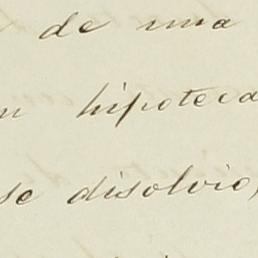 de una
hipoteca
se disolvio,